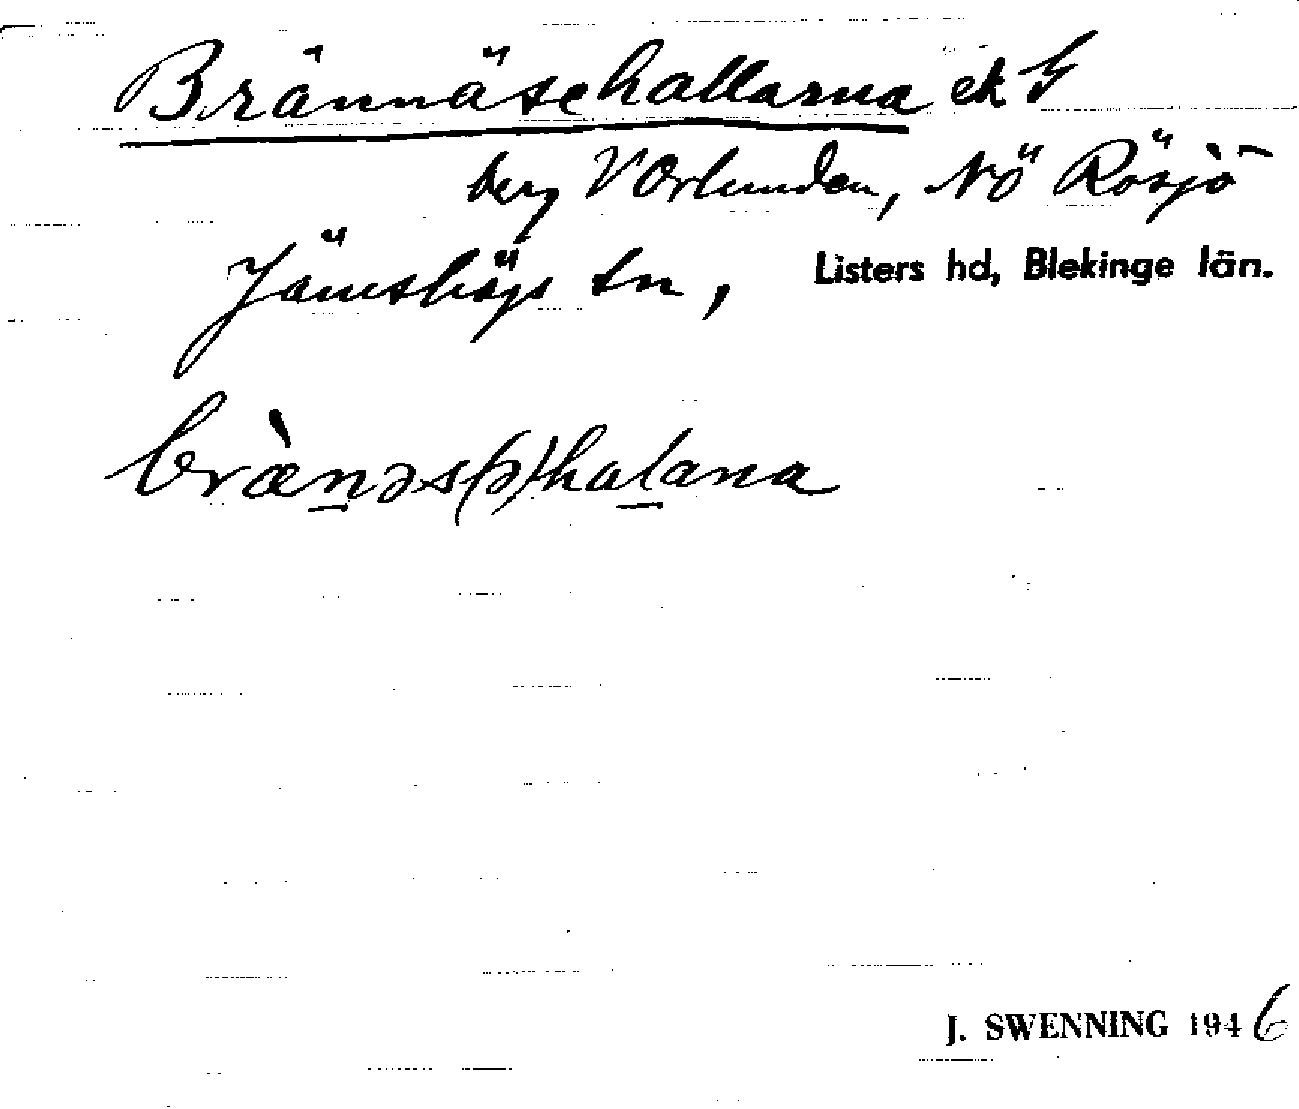 Brännäsehallarna ek 4
berg V Orlunden, NÖ Rösjö
Jämshögs sn, Listers hd, Blekinge län.
brænəs(ə)halana
J. SWENNING 1946